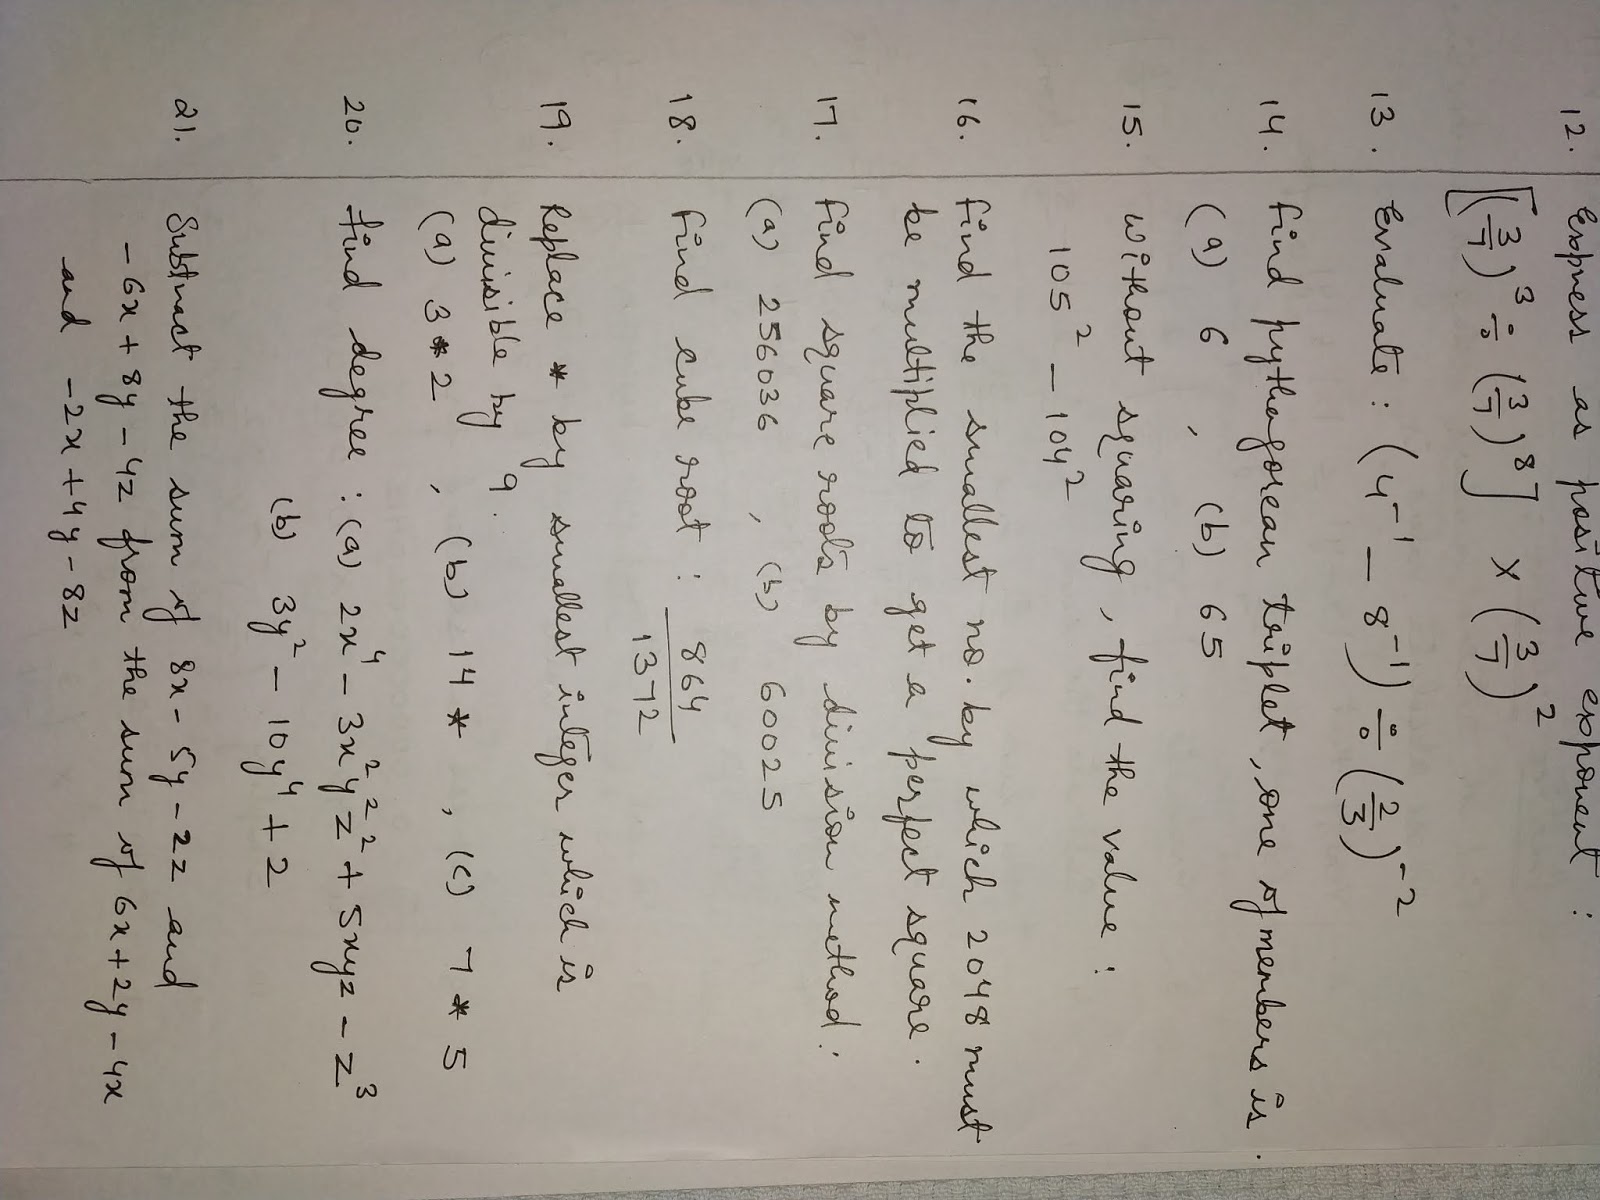 12. Express as positive exponent :
[(3/7)³ ÷ (3/7)⁸] × (3/7)²
13. Evaluate : (4⁻¹ – 8⁻¹) ÷ (2/3)⁻²
14. Find pythagorean triplet, one of members is.
(a) 6 , (b) 65
15. Without squaring, find the value :
105² – 104²
16. Find the smallest no. by which 2048 must
be multiplied to get a perfect square.
17. Find square roots by division method :
(a) 256036 , (b) 60025
18. Find cube root : 864/1372
19. Replace * by smallest integer which is
divisible by 9.
(a) 3*2 , (b) 14* , (c) 7*5
20. Find degree : (a) 2x⁴ – 3x²yz² + 5xyz – z³
(b) 3y² – 10y⁴ + 2
21. Subtract the sum of 8x – 5y – 2z and
– 6x + 8y – 4z from the sum of 6x + 2y – 4x
and – 2x + 4y – 8z